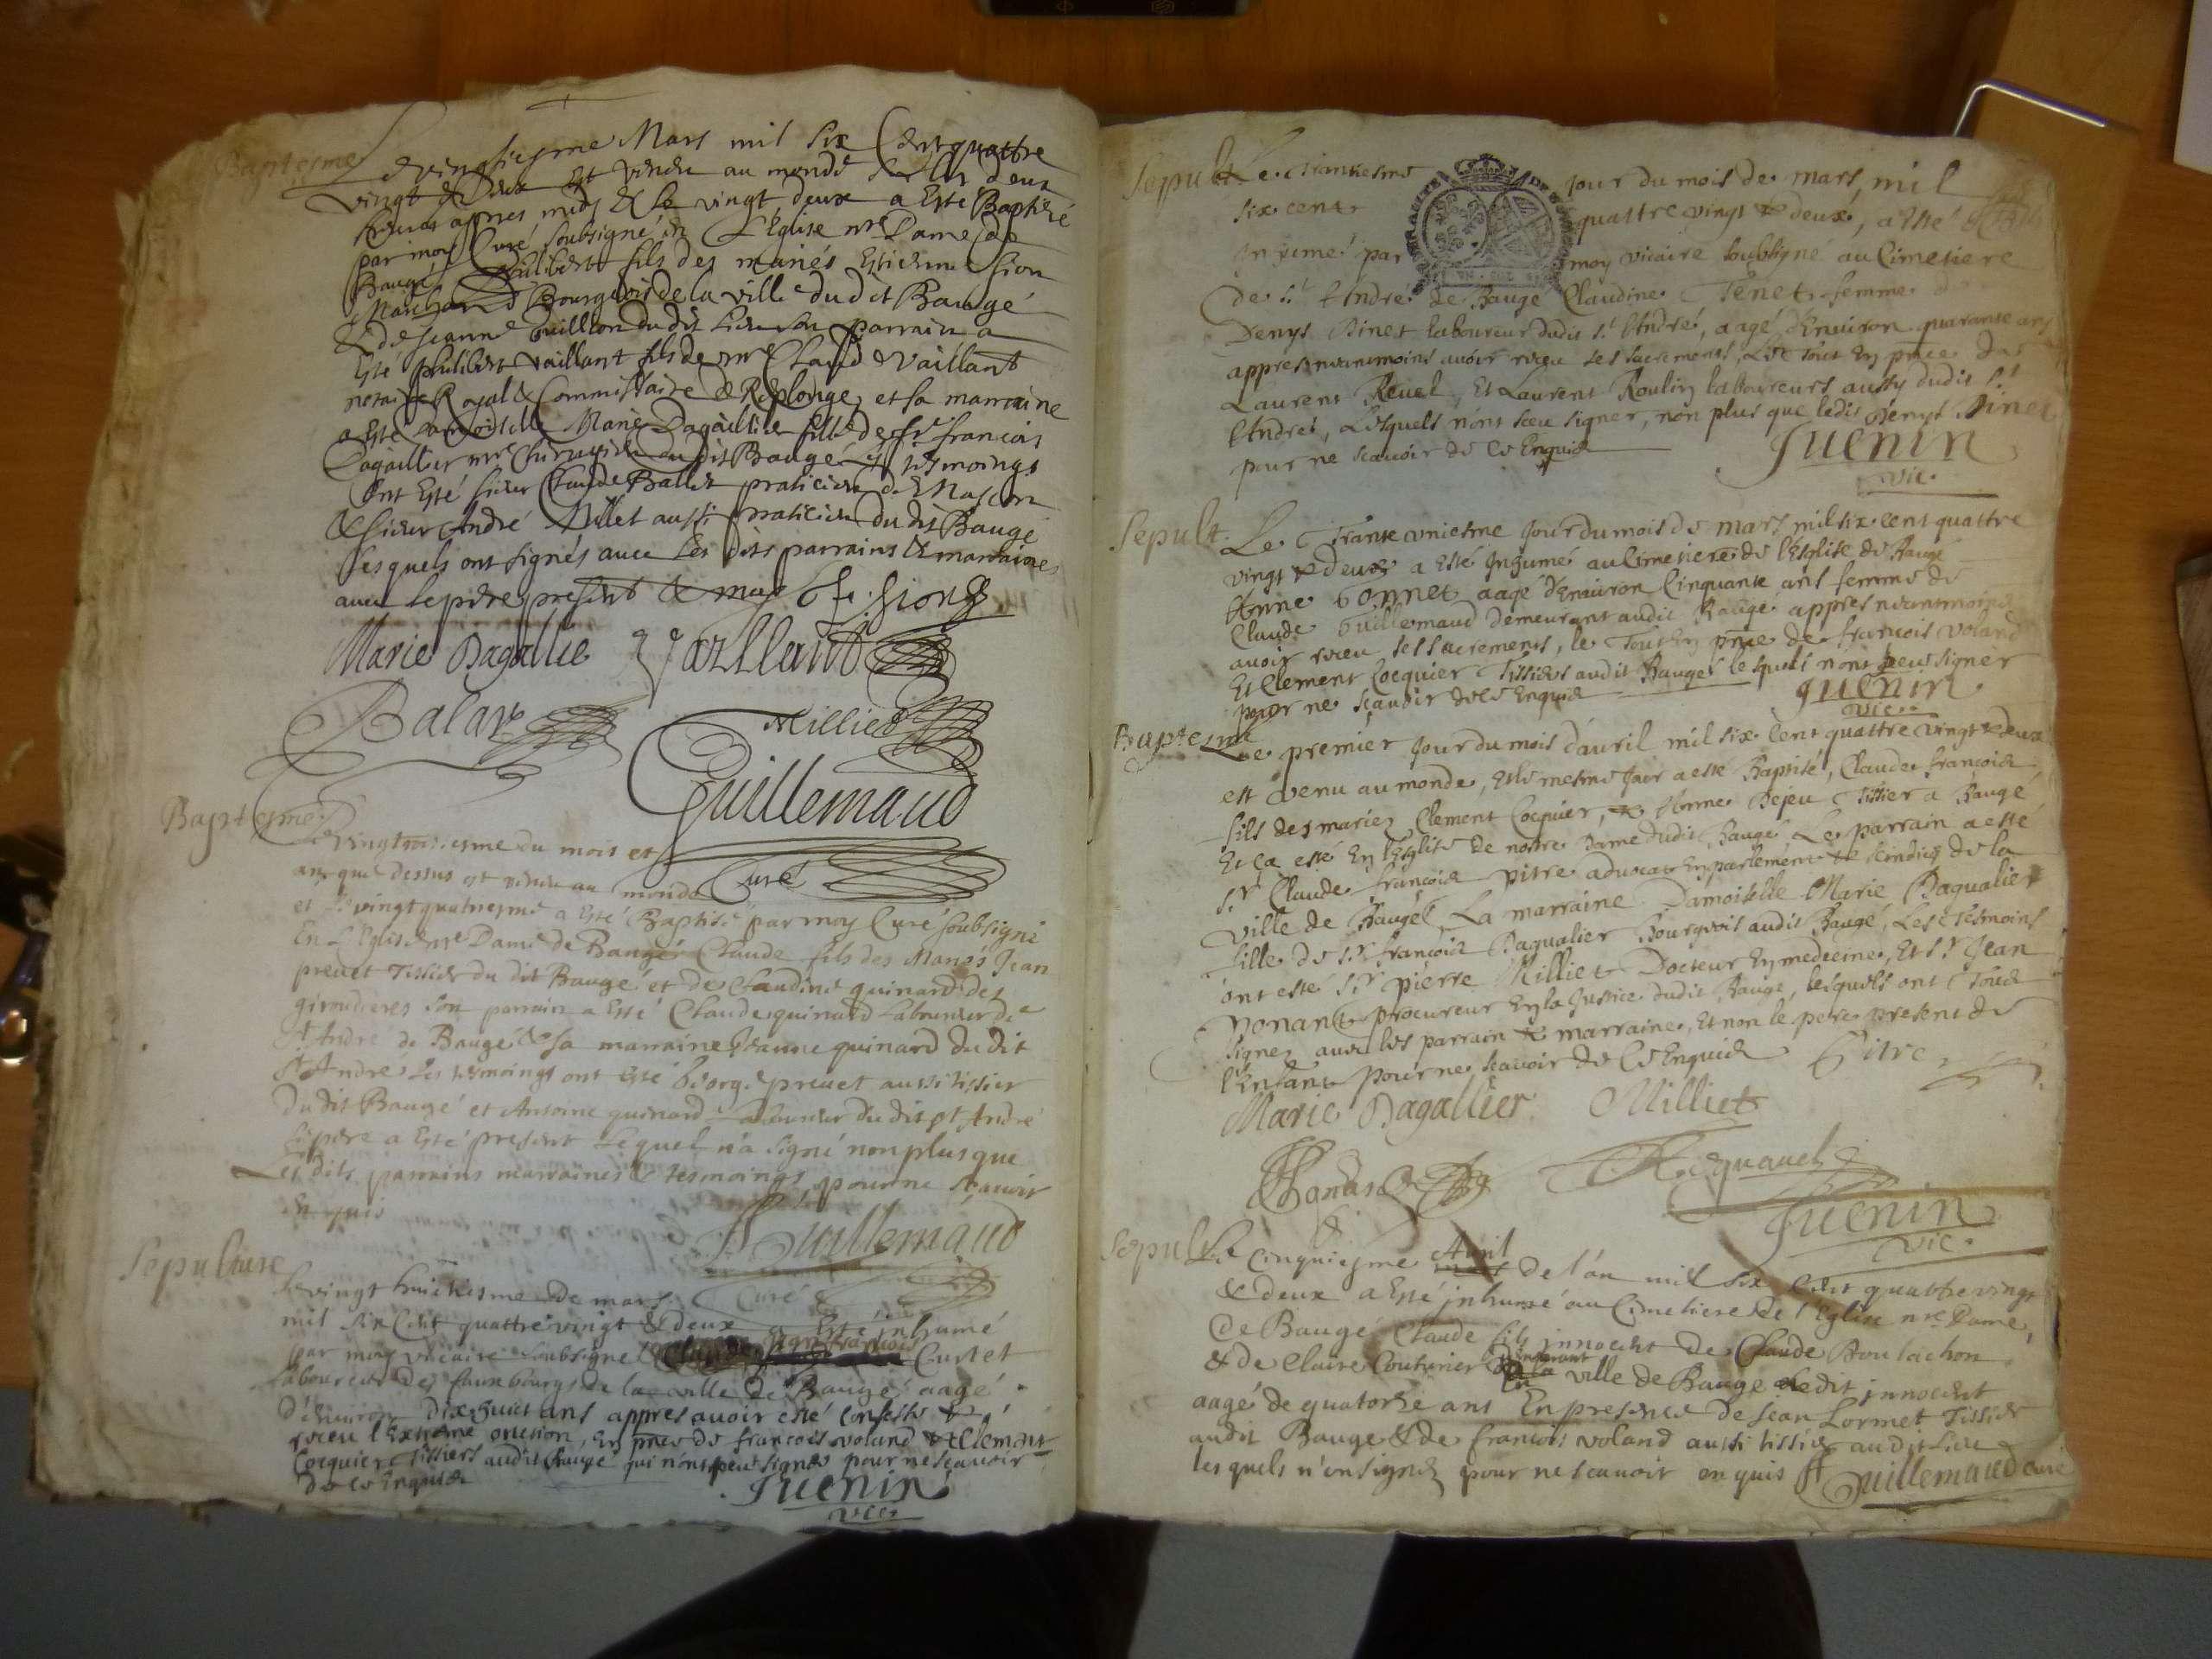 Baptesme
Le vingtiesme Mars mil six Cent quattre
vingt & deux est venu au monde sur les deux
heures apres midy & le vingt deux a Esté Baptizé
par moy Curé soubsigné en L'Eglise nre Dame de
Baugé Philibert fils des mariés Estienne Sion
Marchand Bourgeois de la ville du dit Baugé
& de Jeanne Guillon du dit lieu son parrain a
Esté philibert vaillant fils de mre Claude Vaillant
notaire Royal & Commissaire de Replonge, et sa marraine
a Esté damoiselle Marie Dagaillier fille de sr francois
Dagaillier mre Chirurgien du dit Baugé les tesmoings
Ont Esté sieur Claude Ballet praticien de Mascon
& sieur André Millet aussi praticien du dit Baugé
lesquels ont signés avec les dits parrains & marraines
avec le pere present & moy E. Sion
Marie Dagallie Vaillant
Balay Milliet
Guillemaud
Curé
Baptesme
Le vingtroisiesme du mois et
an que dessus est venu au monde
et le vingtquatriesme a Esté Baptisé par moy Curé soubsigné
En L'Eglise nre Dame de Baugé Claude fils des Mariés Jean
prevet Tissier du dit Baugé et de Claudine quinard des
giroudieres son parrain a Esté Claude quinard Laboureur de
St André de Baugé & sa marraine Jeanne quinard du dit
St André les tesmoings ont Esté George prevet aussi tissier
du dit Baugé et Antoine quinard Laboureur du dit St André
le pere a Esté present Lequel n'a signé non plus que
Les dits parrains marraines & tesmoings pour ne scavoir
enquis
Guillemaud
Curé
Sepulture
Le vingt huictiesme de mars
mil six Cent quattre vingt & deux a Esté inhumé
par moy vicaire soubsigné Curtet
laboureur des fauxbourgs de la ville de Baugé aagé
d'environ dix huict ans appres avoir esté confessé &
receu l'Extreme onction, En pnce de francois voland & Clement
Cocquier Tissiers audit Baugé qui n'ont peu signer pour ne scavoir
de ce Enquis
Juenin
vic.
Sepult.
Le trantiesme jour du mois de mars mil
six cent quattre vingt & deux, a esté
Inhumé par moy vicaire soubsigné au Cimetiere
de St André de Baugé Claudine Tenet femme de
Denys Binet laboureur dudit St André, aagé d'Environ quarante ans
appres neantmoins avoir receu ses sacrements, Le tout En pnce de
Laurent Revel, Et Laurent Roulin laboureurs aussy dudit St
André, Lesquels n'ont sceu signer, non plus que ledit Denys Binet
pour ne scavoir de ce Enquis
Juenin
vic.
Sepult.
Le Trante uniesme jour du mois de mars mil six cent quattre
vingt & deux a esté Inhumé au Cimetiere de l'Eglise de Baugé
Anne Gonnet aagé d'Environ Cinquante ans femme de
Claude Guillemaud demeurant audit Baugé appres neantmoins
avoir receu ses sacrements, le Tout En pnce de francois voland
Et Clement Cocquier Tissiers audit Baugé lesquels n'ont peu signer
pour ne scavoir de ce Enquis
Juenin
vic.
Baptesme
Le premier Jour du mois d'avril mil six Cent quattre vingt & deux
est venu au monde, Et le mesme Jour a esté Baptisé, Claude francois
fils des mariez Clement Cocquier, & Anne Dejeu Tissier a Baugé
Et ça esté En l'Eglise de nostre Dame dudit Baugé Le parrain a esté
Sr Claude francois pitre advocat En parlement & scindicq de la
ville de Baugé, La marraine Damoiselle Marie Dagualier
fille de Sr francois Dagualier Bourgeois audit Baugé, Les Tesmoins
ont esté Sr pierre Milliet Docteur En medecine, Et Sr Jean
Monant procureur En la Justice dudit Baugé, lesquels ont Tous
signez avec les parrain & marraine, Et non le pere present de
l'Enfant pour ne scavoir de ce Enquis Pitre
Marie Dagallier Milliet
Juenin
vic.
Sepult.
Le Cinquiesme Avril de l'an mil six Cent quattre vingt
& deux a Esté inhumé au Cimetiere de l'Eglise nre Dame
de Baugé Claude fils innocent de Claude Boulachon
& de Claire Couturier demeurant
en la ville de Baugé ledit innocent
aagé de quatorze ans En presence de Jean Lormet Tissier
audit Baugé & de francois voland aussi tissier audit lieu
lesquels n'ont signez pour ne scavoir enquis Guillemaud curé